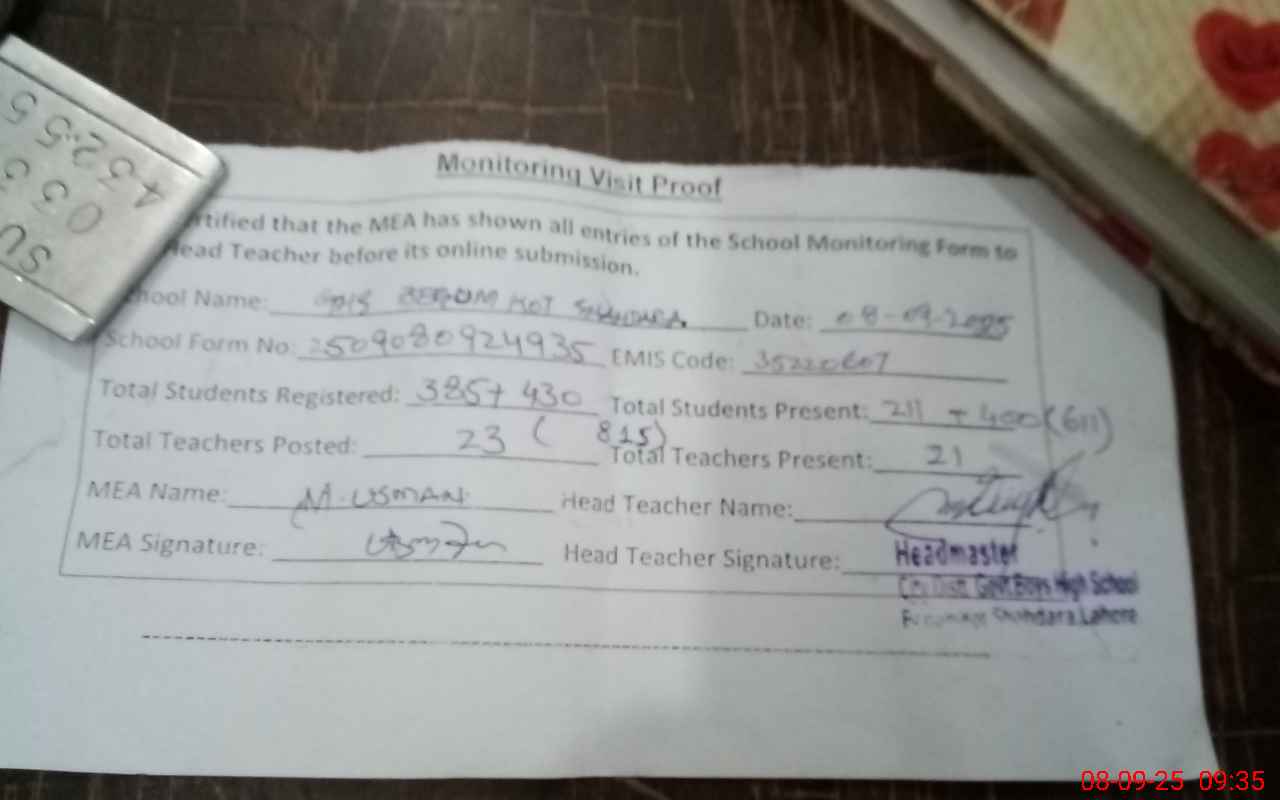 Monitoring Visit Proof
rtified that the MEA has shown all entries of the School Monitoring Form to
Head Teacher before its online submission.
hool Name: BEGUM KOT SHAHDARA Date: 08-09-2025
School Form No: 2509080924935 EMIS Code:
Total Students Registered: 385+ 430 Total Students Present: 211 + 400 (611)
(815)
Total Teachers Posted: 23 Total Teachers Present: 21
MEA Name: M. USMAN Head Teacher Name:
MEA Signature: Usman Head Teacher Signature:
Headmaster
City Distt. Govt. Boys High School
Shahdara Lahore
SU
0 3 3
4 3 2.5 5
08-09-25 09:35